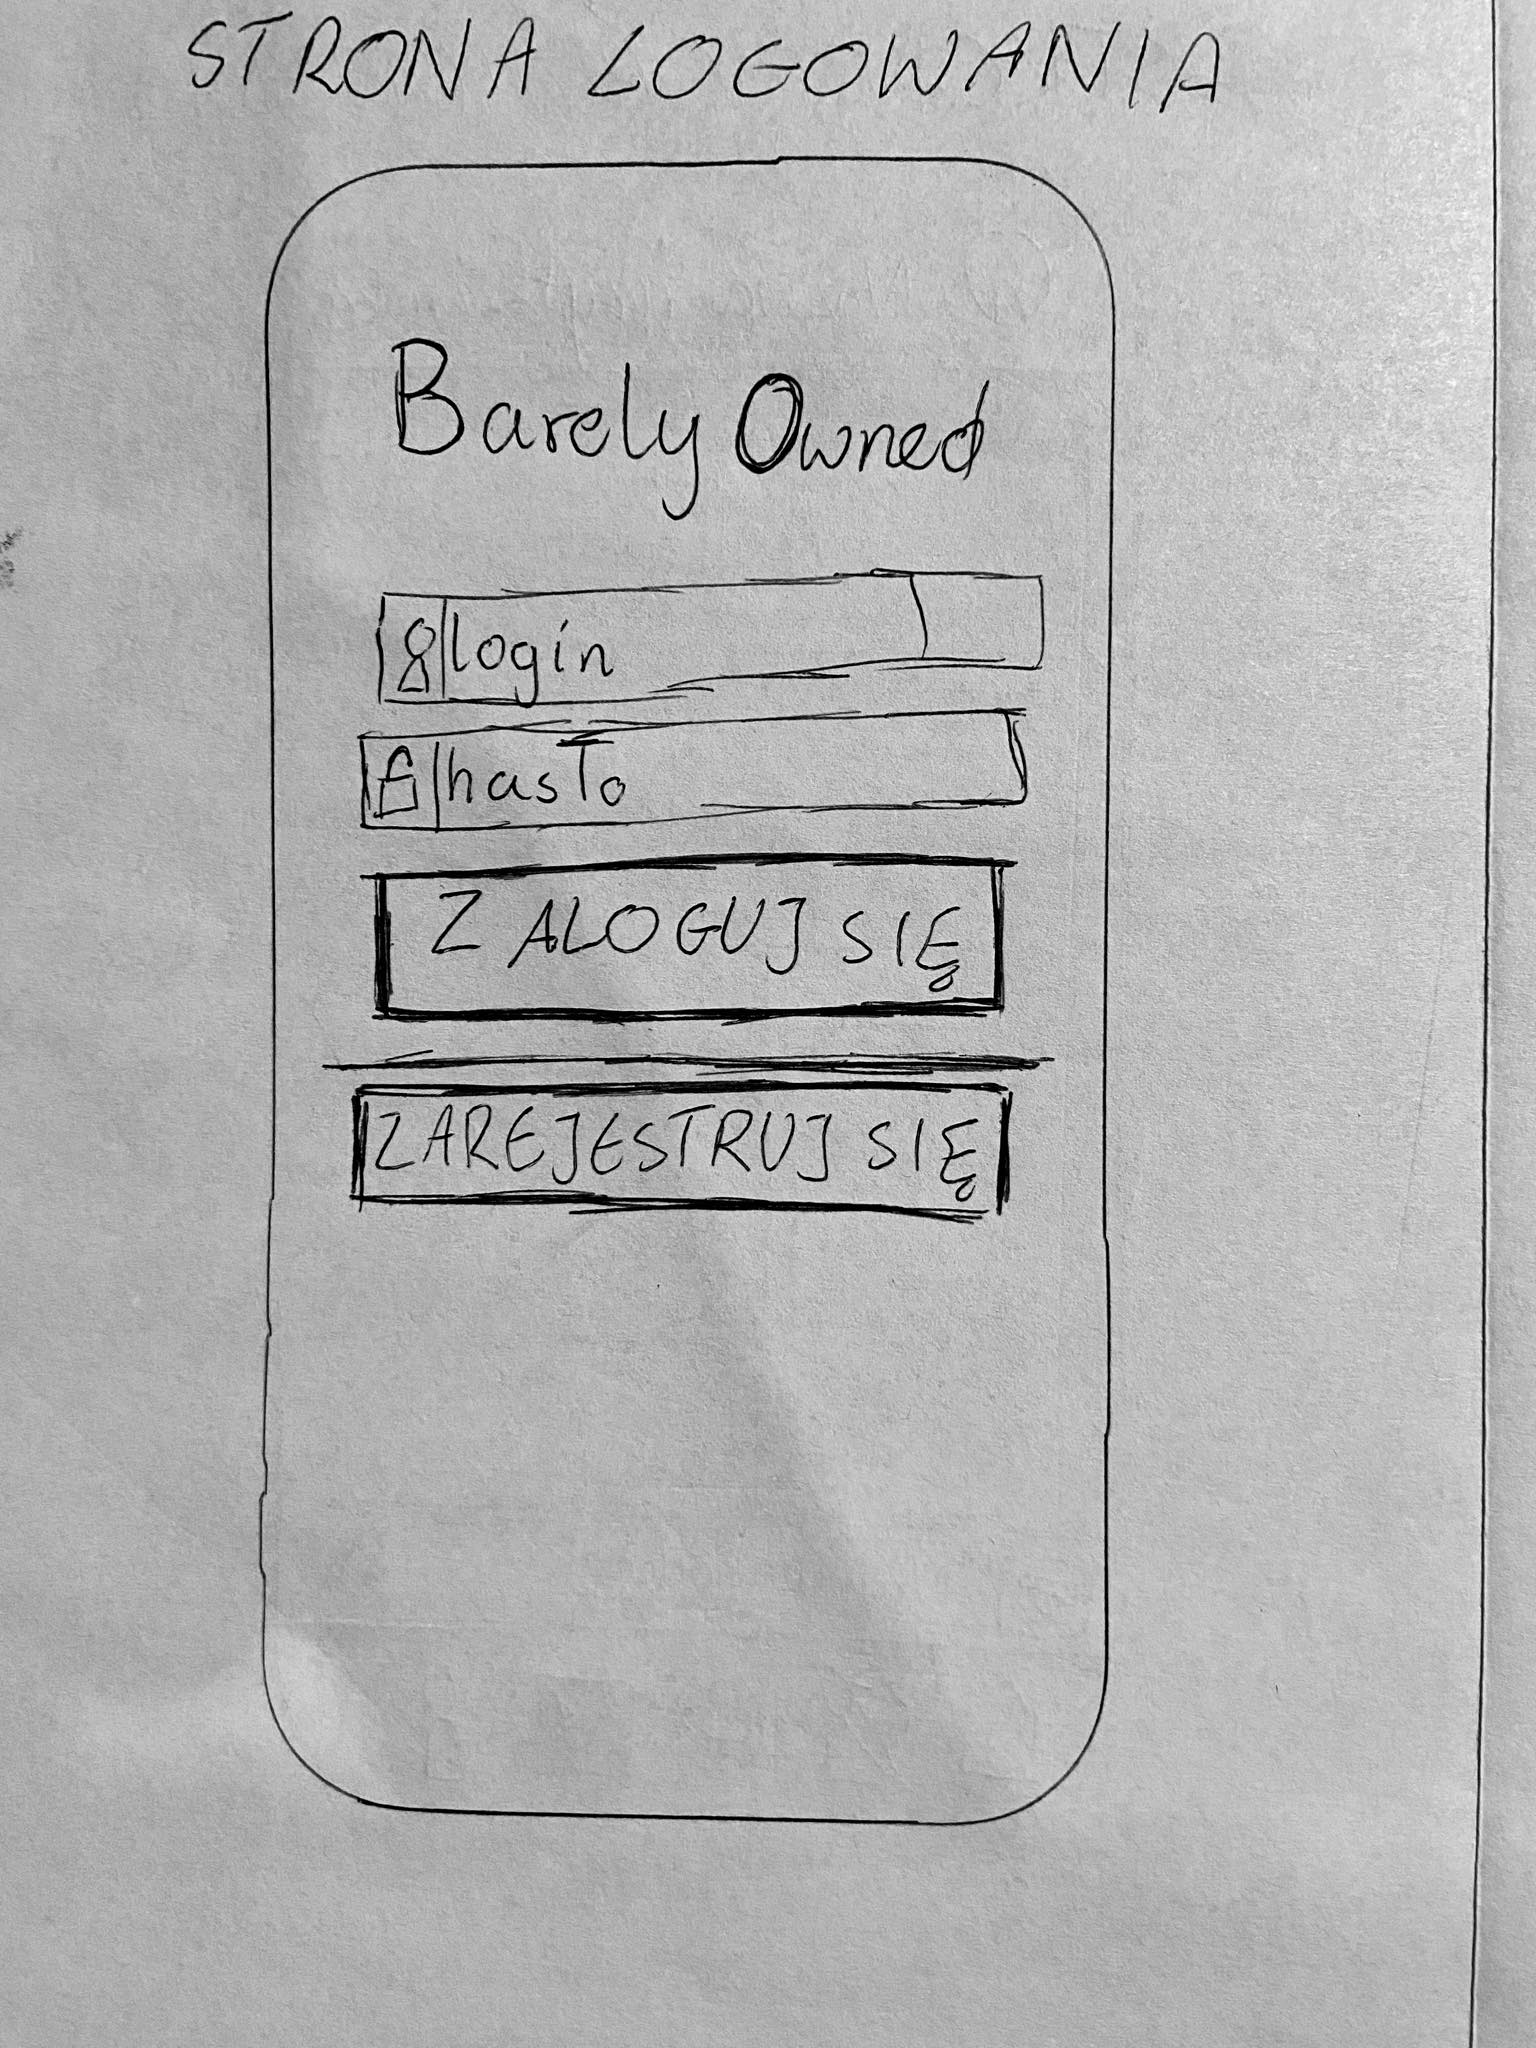 STRONA LOGOWANIA
Barely Owned
login
hasło
ZALOGUJ SIĘ
ZAREJESTRUJ SIĘ